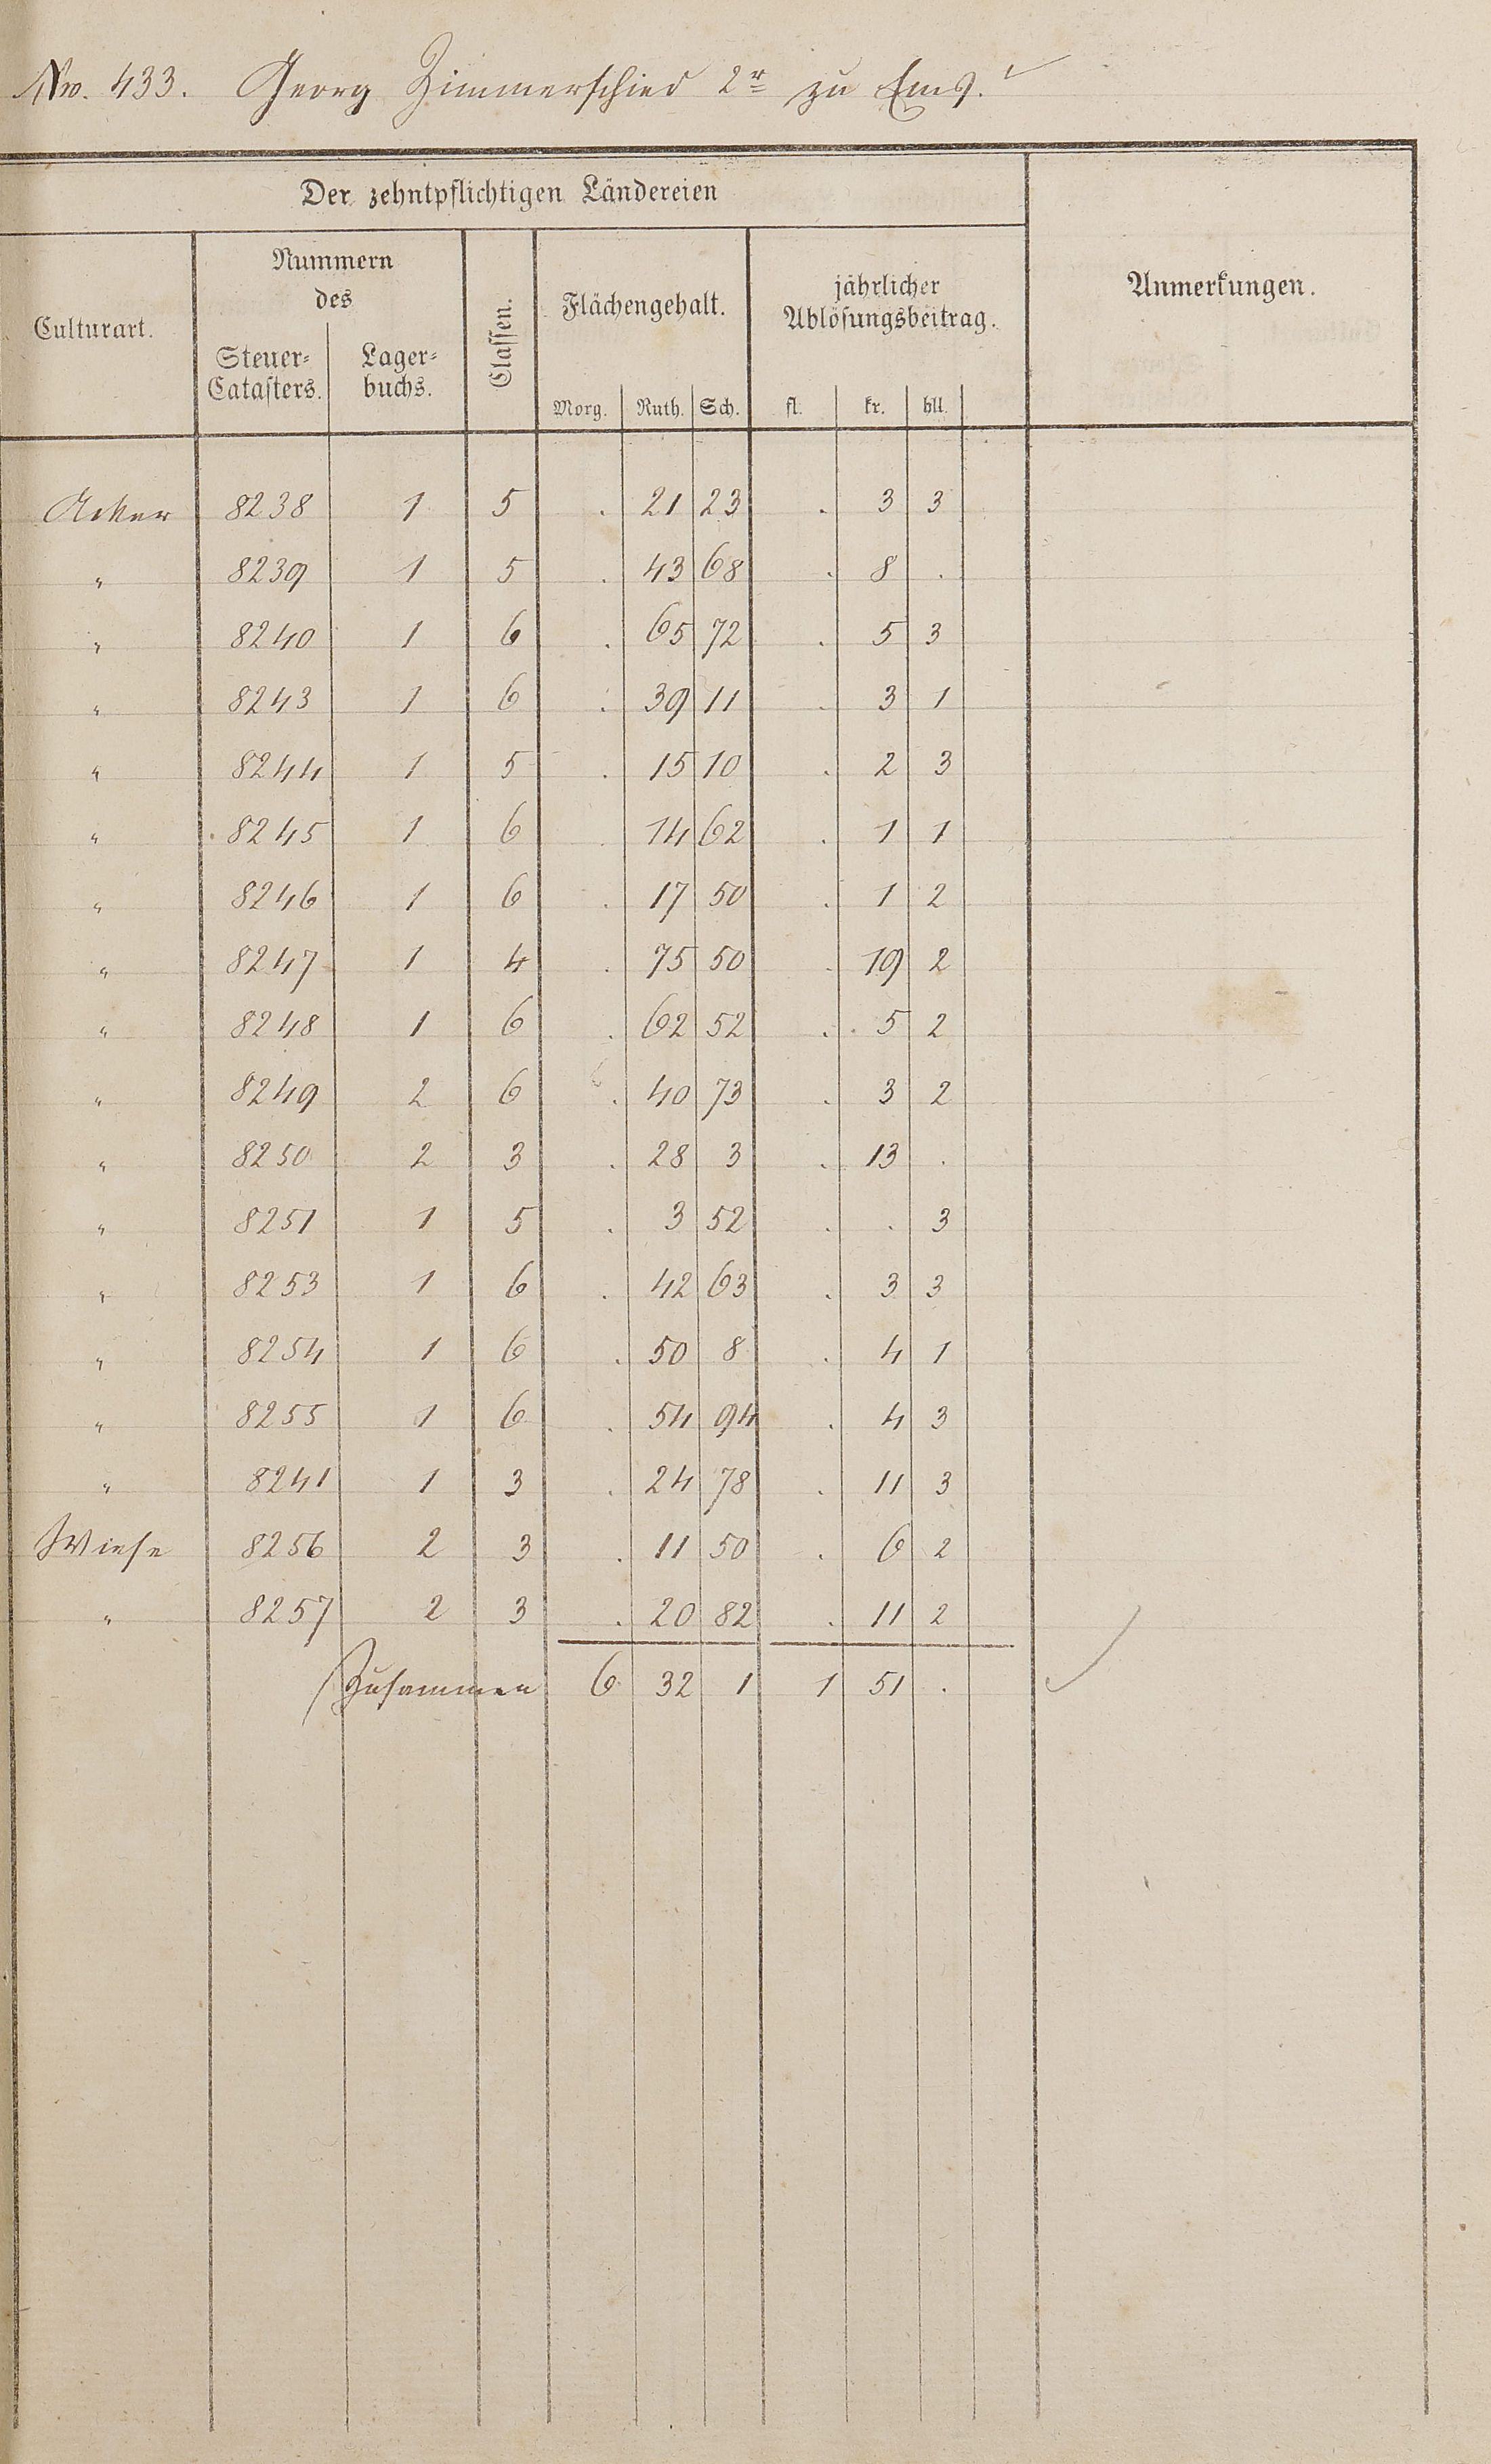 No. 433. Georg Zimmerschied 2r zu Ems.
Der zehntpflichtigen Ländereien
Culturart. Nummern des Steuer-Catasters. Lager-buchs. Classen. Flächengehalt. jährlicher Ablösungsbeitrag. Anmerkungen.
Morg. Ruth. Sch. fl. kr. hll.
Acker 8238 1 5 . 21 23 . 3 3
" 8239 1 5 . 43 68 . 8 .
" 8240 1 6 . 65 72 . 5 3
" 8243 1 6 . 39 11 . 3 1
" 8244 1 5 . 15 10 . 2 3
" 8245 1 6 . 14 62 . 1 1
" 8246 1 6 . 17 50 . 1 2
" 8247 1 4 . 75 50 . 19 2
" 8248 1 6 . 62 52 . 5 2
" 8249 2 6 . 40 73 . 3 2
" 8250 2 3 . 28 3 . 13 .
" 8251 1 5 . 3 52 . . 3
" 8253 1 6 . 42 63 . 3 3
" 8254 1 6 . 50 8 . 4 1
" 8255 1 6 . 54 94 . 4 3
" 8241 1 3 . 24 78 . 11 3
Wiese 8256 2 3 . 11 50 . 6 2
" 8257 2 3 . 20 82 . 11 2
Zusammen 6 32 1 1 51 .